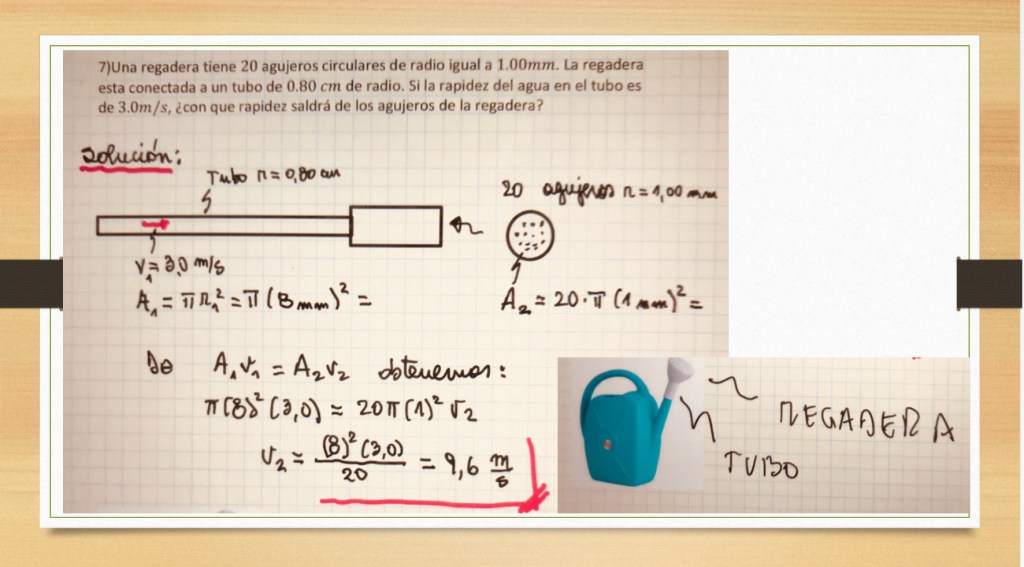 7)Una regadera tiene 20 agujeros circulares de radio igual a 1.00mm. La regadera
esta conectada a un tubo de 0.80 cm de radio. Si la rapidez del agua en el tubo es
de 3.0m/s, ¿con que rapidez saldrá de los agujeros de la regadera?
Solución:
Tubo r = 0,80 cm
20 agujeros r = 1,00 mm
V₁ = 3,0 m/s
A₁ = π r₁² = π (8 mm)² =
A₂ = 20·π (1 mm)² =
De A₁v₁ = A₂v₂ obtenemos:
π(8)² (3,0) = 20π(1)² v₂
v₂ = (8)² (3,0) / 20 = 9,6 m/s
REGADERA
TUBO